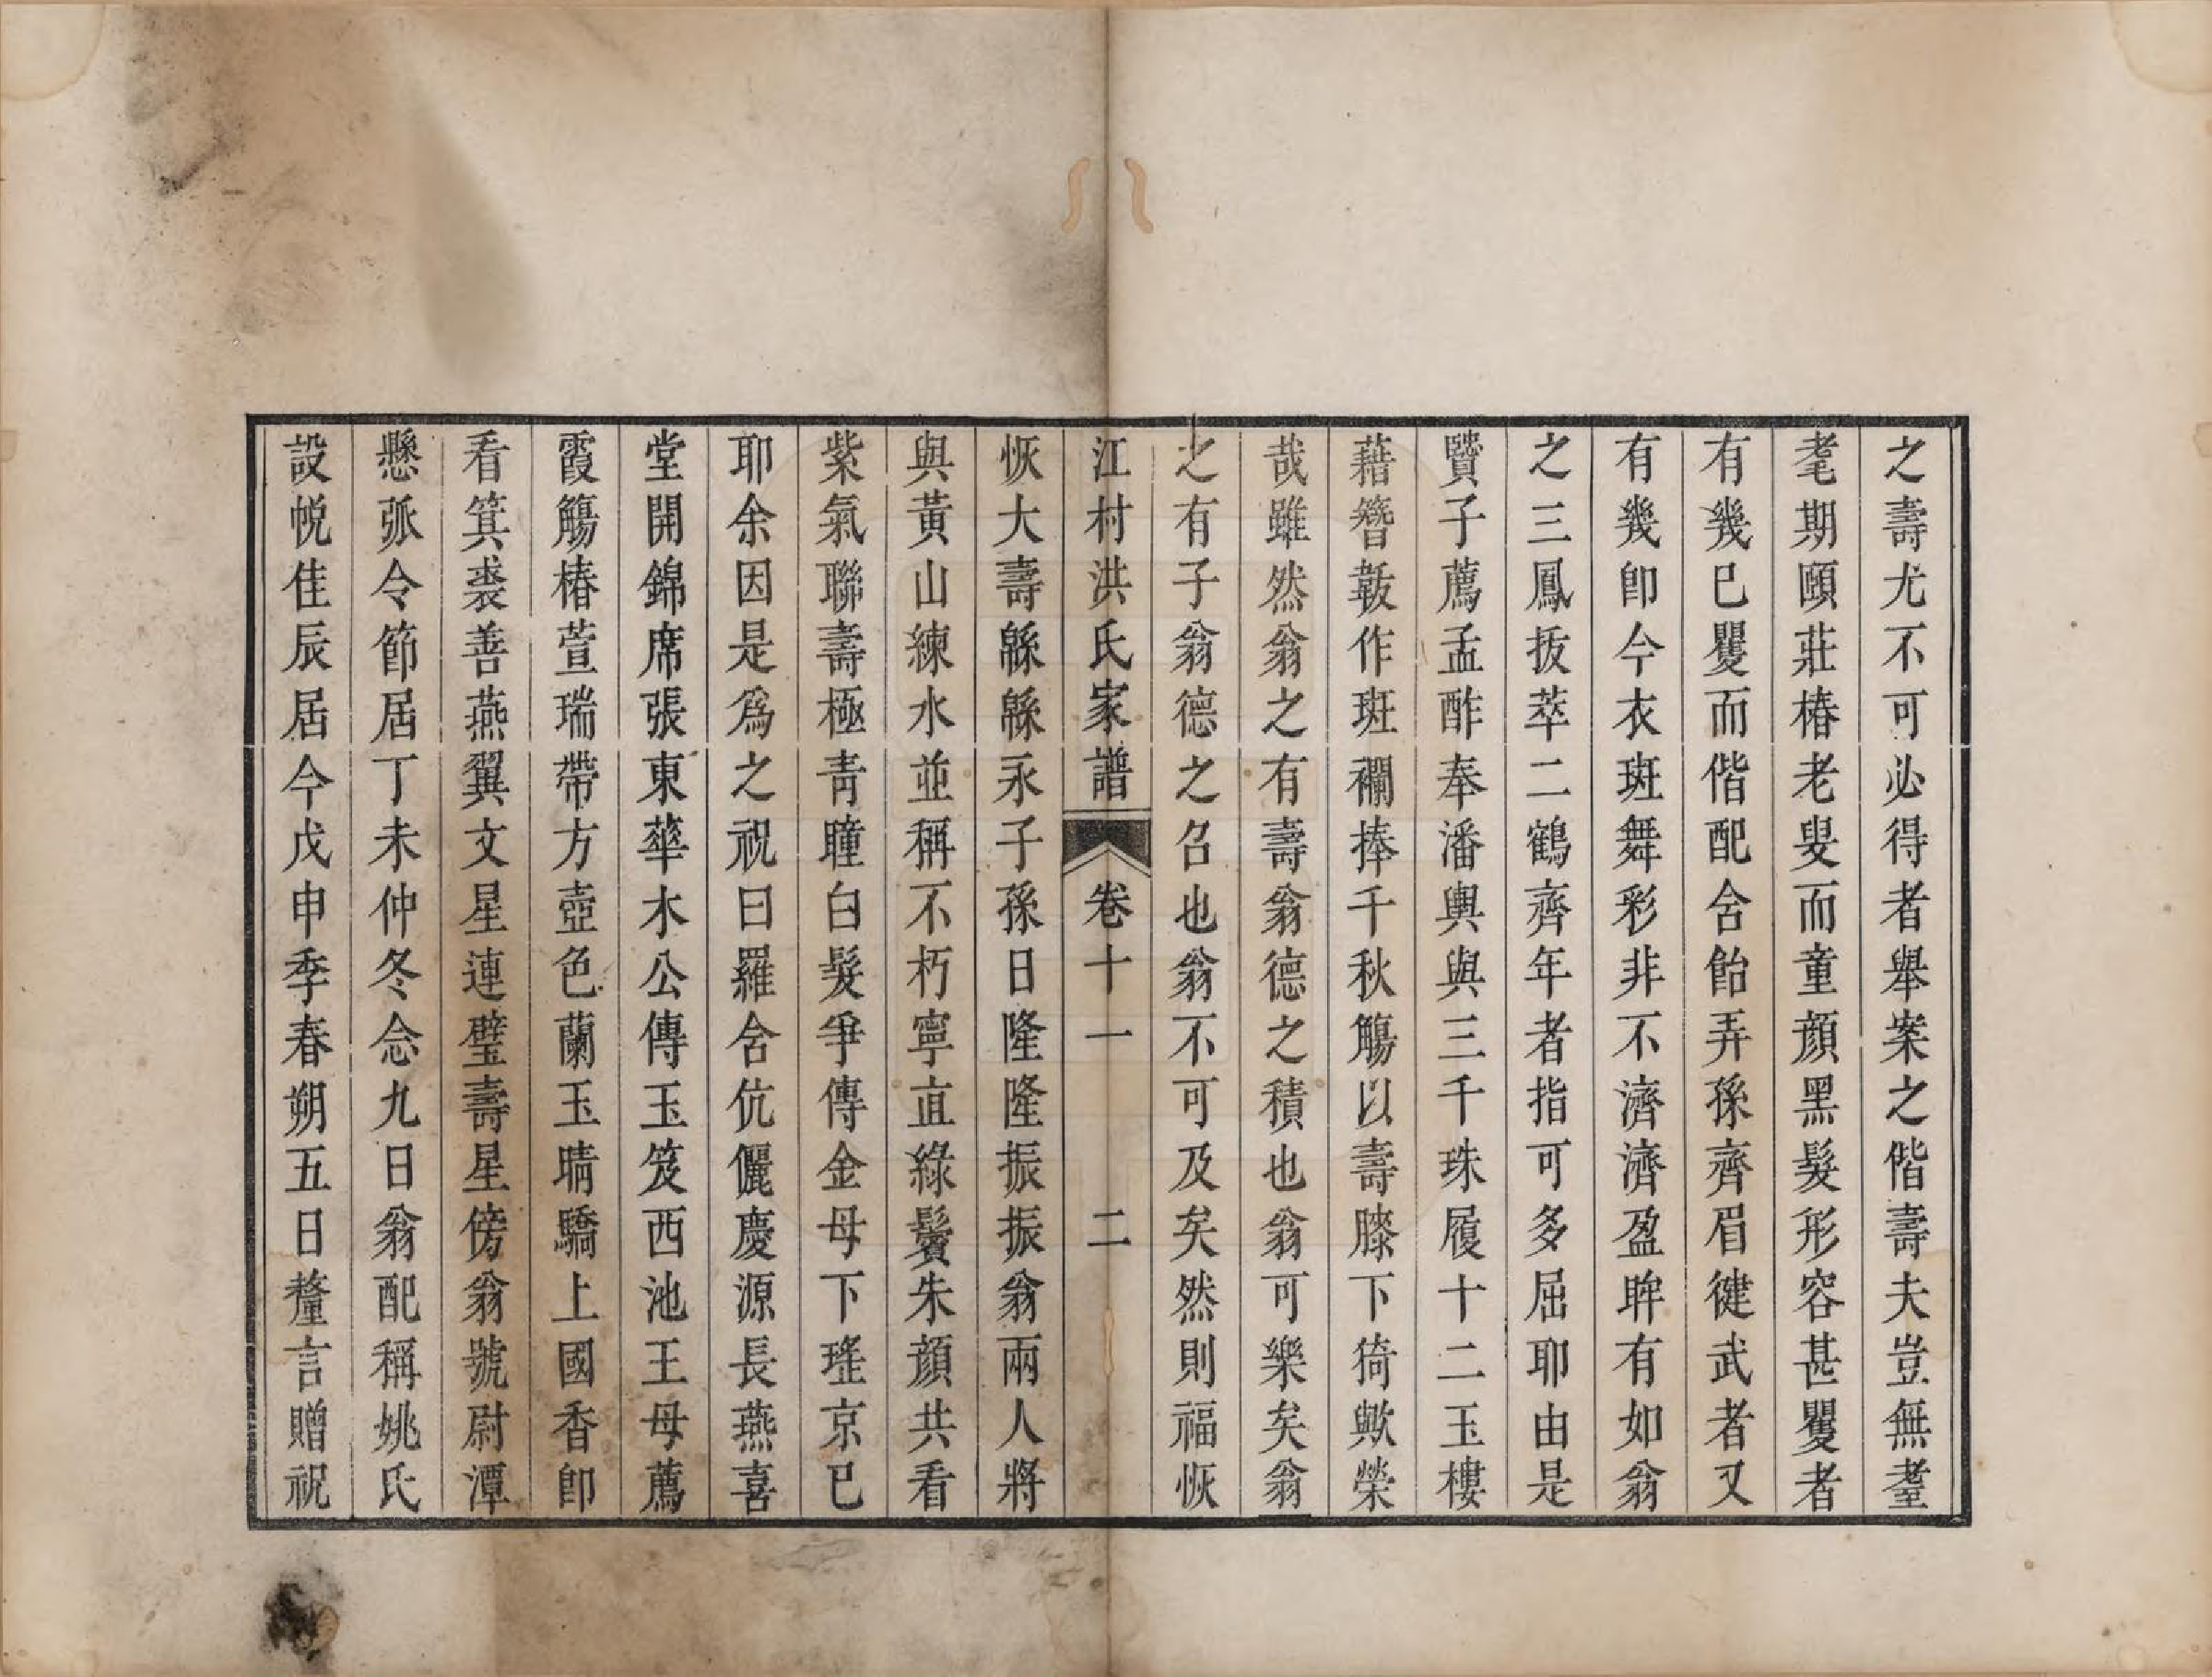 之壽尤不可必得者舉案之偕壽夫豈無耋
耄期頤莊椿老叟而童顏黑髮形容甚矍者
有幾已矍而偕配含飴弄孫齊眉徤武者又
有幾卽今衣斑舞彩非不濟濟盈眸有如翁
之三鳳拔萃二鶴齊年者指可多屈耶由是
賢子薦孟酢奉潘輿與三千珠履十二玉樓
藉簪韍作斑襴捧千秋觴以壽膝下猗歟榮
哉雖然翁之有壽翁德之積也翁可樂矣翁
之有子翁德之召也翁不可及矣然則福恢
江村洪氏家譜 卷十一 二
恢大壽緜緜永子孫日隆隆振振翁兩人將
與黃山練水並稱不朽寧直綠鬢朱顏共看
紫氣聯壽極靑瞳白髮爭傳金母下瑤京已
耶余因是爲之祝曰羅含伉儷慶源長燕喜
堂開錦席張東華木公傳玉笈西池王母薦
霞觴椿萱瑞帶方壺色蘭玉晴驕上國香卽
看箕裘善燕翼文星連璧壽星傍翁號尉潭
懸弧令節居丁未仲冬念九日翁配稱姚氏
設帨佳辰居今戊申季春朔五日釐言贈祝